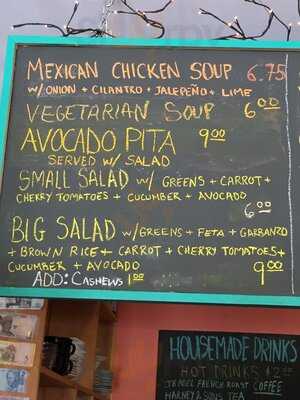 MEXICAN CHICKEN SOUP 6.75
W/ ONION + CILANTRO + JALEPEÑO + LIME
VEGETARIAN SOUP 6.00
AVOCADO PITA 9.00
SERVED W/ SALAD
SMALL SALAD W/ GREENS + CARROT +
CHERRY TOMATOES + CUCUMBER + AVOCADO
6.00
BIG SALAD W/ GREENS + FETA + GARBANZO
+ BROWN RICE + CARROT + CHERRY TOMATOES +
CUCUMBER + AVOCADO 9.00
ADD: CASHEWS 1.00
HOUSEMADE DRINKS
HOT DRINKS $2.00
FRENCH ROAST COFFEE
HARNEY & SONS TEA